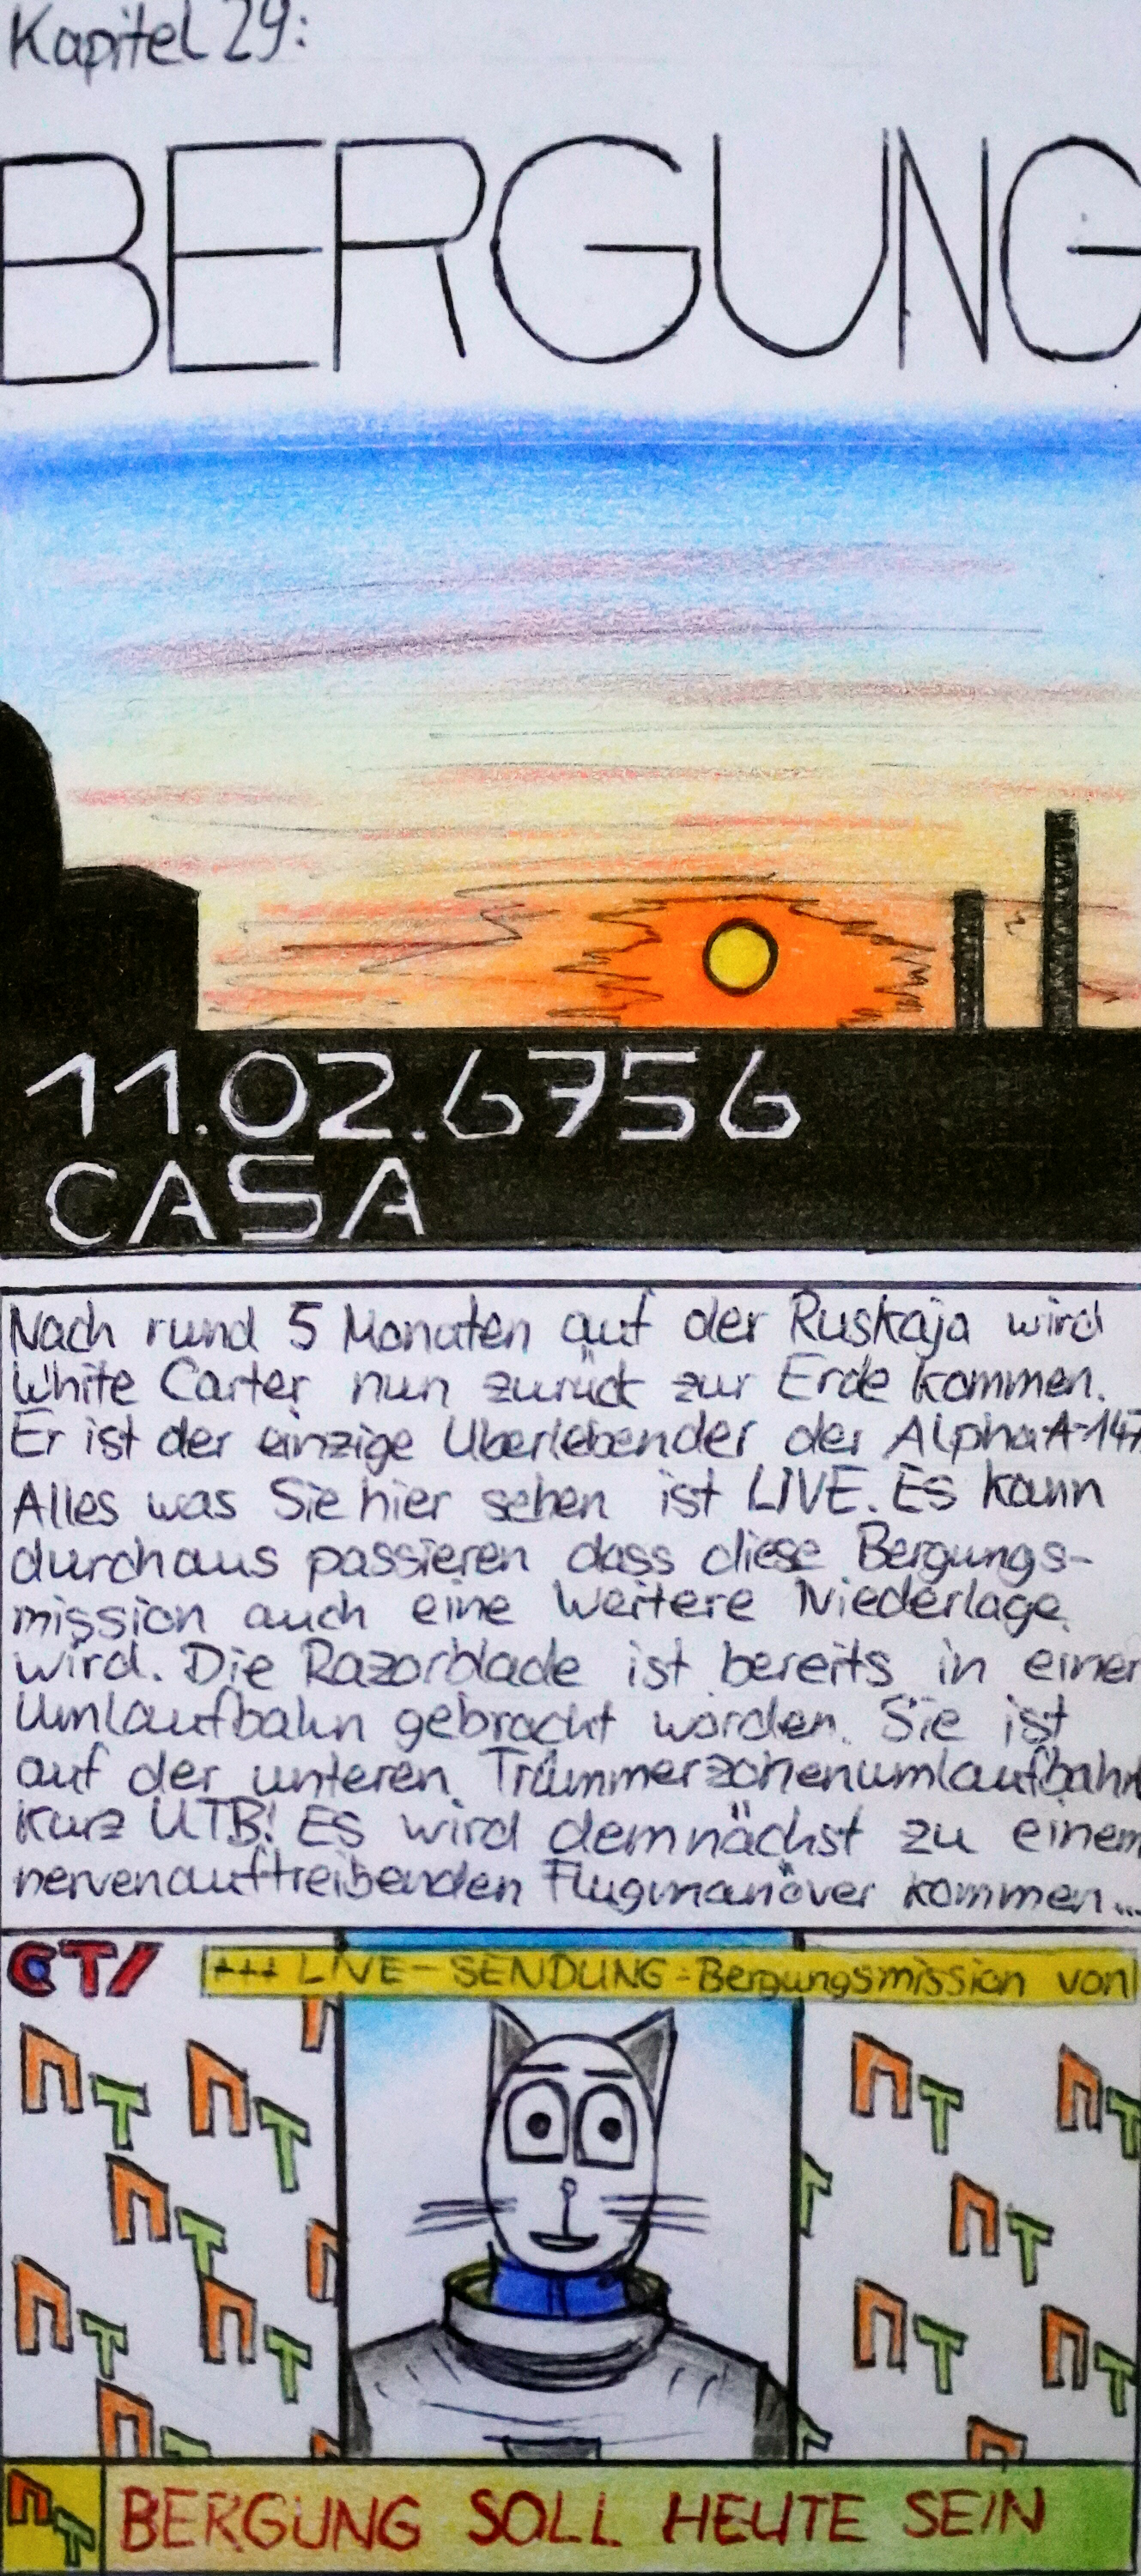 Kapitel 29:
BERGUNG
11.02.6756
CASA
Nach rund 5 Monaten auf der Ruskaja wird
White Carter nun zurück zur Erde kommen.
Er ist der einzige Überlebender der Alpha A-147
Alles was Sie hier sehen ist LIVE. Es kann
durchaus passieren dass diese Bergungs-
mission auch eine Weitere Niederlage
wird. Die Razorblade ist bereits in einer
Umlaufbahn gebracht worden. Sie ist
auf der unteren Trümmerzonenumlaufbahn
Kurz UTB! Es wird demnächst zu einem
nervenauftreibenden Flugmanöver kommen...
CT/ +++ LIVE-SENDUNG: Bergungsmission von
ПТ BERGUNG SOLL HEUTE SEIN